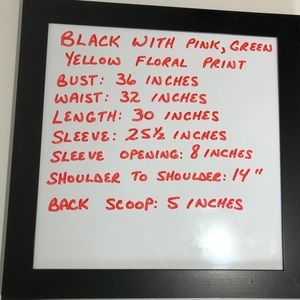 BLACK WITH PINK, GREEN
YELLOW FLORAL PRINT
BUST: 36 INCHES
WAIST: 32 INCHES
LENGTH: 30 INCHES
SLEEVE: 25½ INCHES
SLEEVE OPENING: 8 INCHES
SHOULDER TO SHOULDER: 14"
BACK SCOOP: 5 INCHES